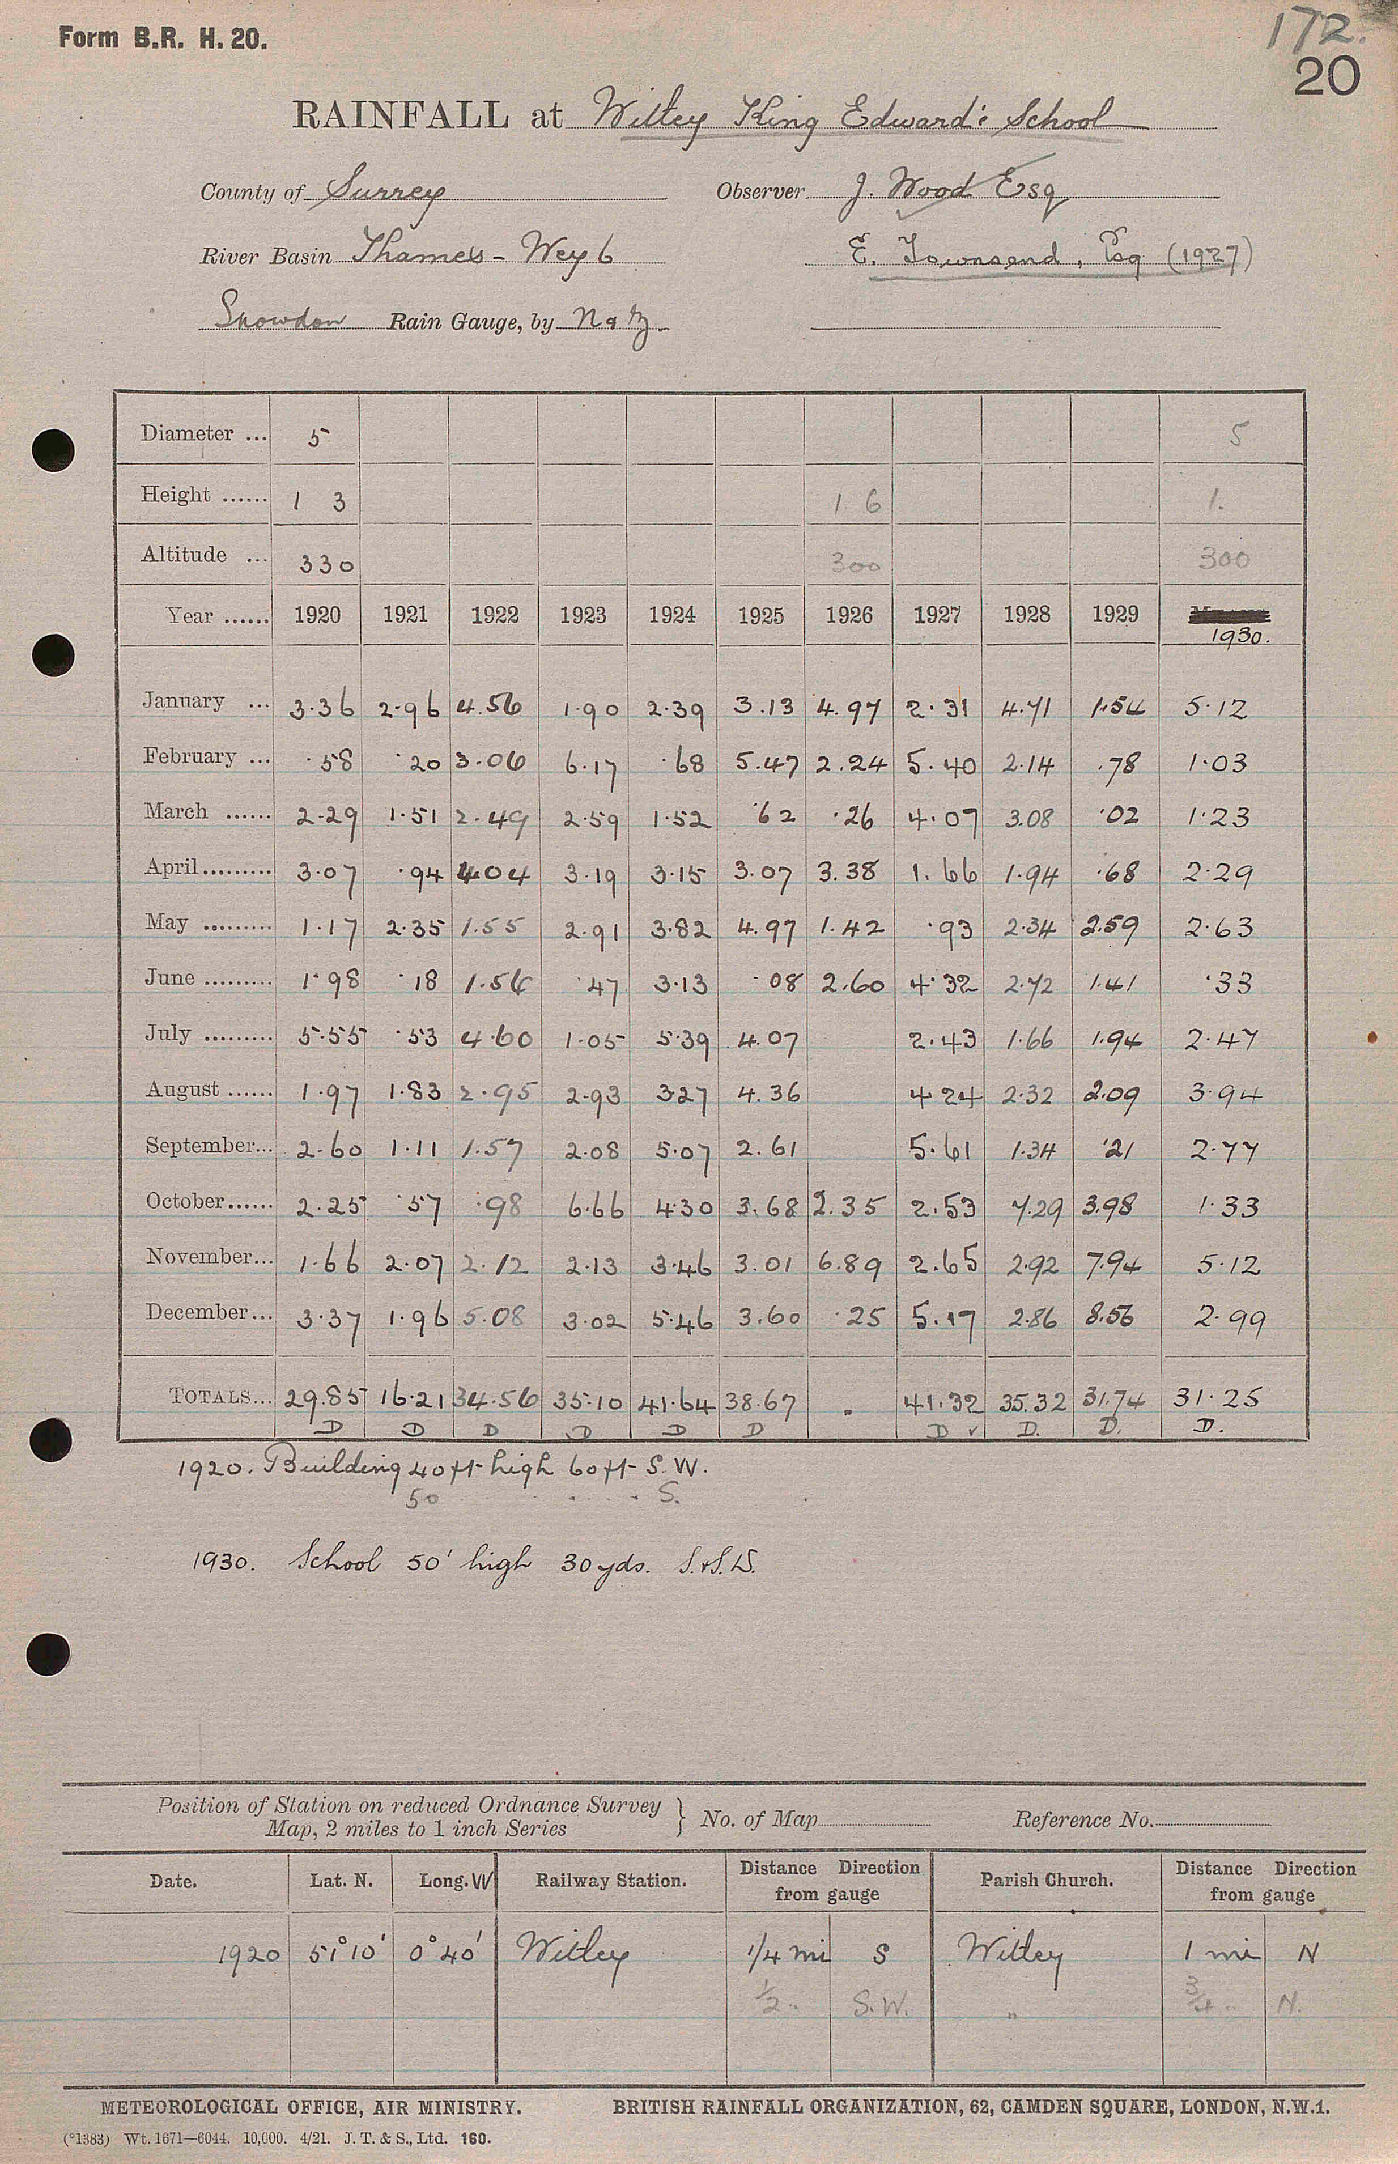 172.
Form B.R. H. 20.
20
RAINFALL at Witley King Edward's School
County of Surrey Observer J. Wood Esq
River Basin Thames - Wey 6 E. Townsend, Esq (1927)
Snowdon Rain Gauge, by N & Z
Diameter ... 5 5
Height ...... 1 3 1 6 1.
Altitude ... 330 300 300
Year ...... 1920 1921 1922 1923 1924 1925 1926 1927 1928 1929 1930.
January ... 3.36 2.96 4.56 1.90 2.39 3.13 4.97 2.31 4.71 1.54 5.12
February ... .58 .20 3.06 6.17 .68 5.47 2.24 5.40 2.14 .78 1.03
March ...... 2.29 1.51 2.49 2.59 1.52 .62 .26 4.07 3.08 .02 1.23
April ......... 3.07 .94 4.04 3.19 3.15 3.07 3.38 1.66 1.94 .68 2.29
May ......... 1.17 2.35 1.55 2.91 3.82 4.97 1.42 .93 2.34 2.59 2.63
June ......... 1.98 .18 1.56 .47 3.13 .08 2.60 4.32 2.72 1.41 .33
July ......... 5.55 .53 4.60 1.05 5.39 4.07 2.43 1.66 1.94 2.47
August ...... 1.97 1.83 2.95 2.93 3.27 4.36 4.24 2.32 2.09 3.94
September... 2.60 1.11 1.57 2.08 5.07 2.61 5.61 1.34 .21 2.77
October...... 2.25 .57 .98 6.66 4.30 3.68 2.35 2.53 7.29 3.98 1.33
November... 1.66 2.07 2.12 2.13 3.46 3.01 6.89 2.65 2.92 7.94 5.12
December... 3.37 1.96 5.08 3.02 5.46 3.60 .25 5.17 2.86 8.56 2.99
TOTALS... 29.85 16.21 34.56 35.10 41.64 38.67 . 41.32 35.32 31.74 31.25
D D D D D D D ✓ D. D. D.
1920. Building 40ft high 60ft S.W.
50 . . . S.
1930. School 50' high 30 yds. S. & S.W.
Position of Station on reduced Ordnance Survey Map, 2 miles to 1 inch Series } No. of Map Reference No.
Date. Lat. N. Long. W Railway Station. Distance Direction from gauge Parish Church. Distance Direction from gauge
1920 51°10' 0°40' Witley 1/4 mi S Witley 1 mi N
1/2 .. S.W. " 3/4 .. N.
METEOROLOGICAL OFFICE, AIR MINISTRY. BRITISH RAINFALL ORGANIZATION, 62, CAMDEN SQUARE, LONDON, N.W.1.
(*1383) Wt. 1671—6044. 10,000. 4/21. J. T. & S., Ltd. 160.